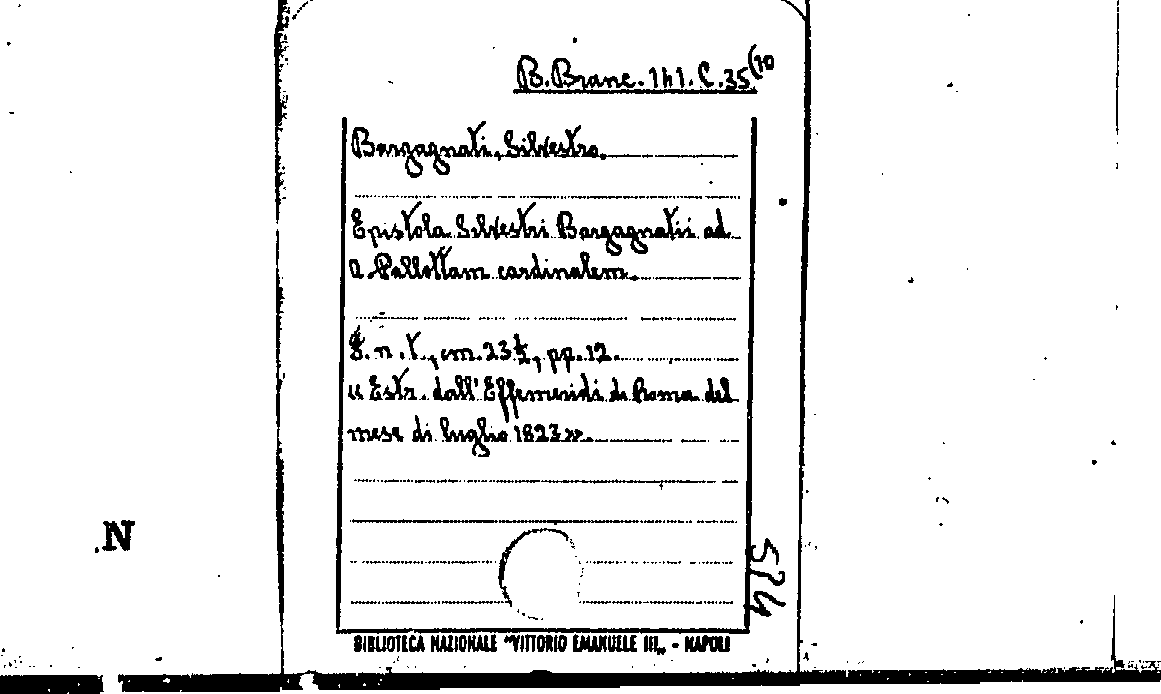 B. Branc. 141. C. 35 (10
Bargagnati, Silvestro.
Epistola Silvestri Bargagnatii ad
A. Pallottam cardinalem.
S. n. t., cm. 23½, pp. 12.
« Estr. dall'Effemeridi di Roma del
mese di luglio 1823 ».
N
BIBLIOTECA NAZIONALE "VITTORIO EMANUELE III„ - NAPOLI